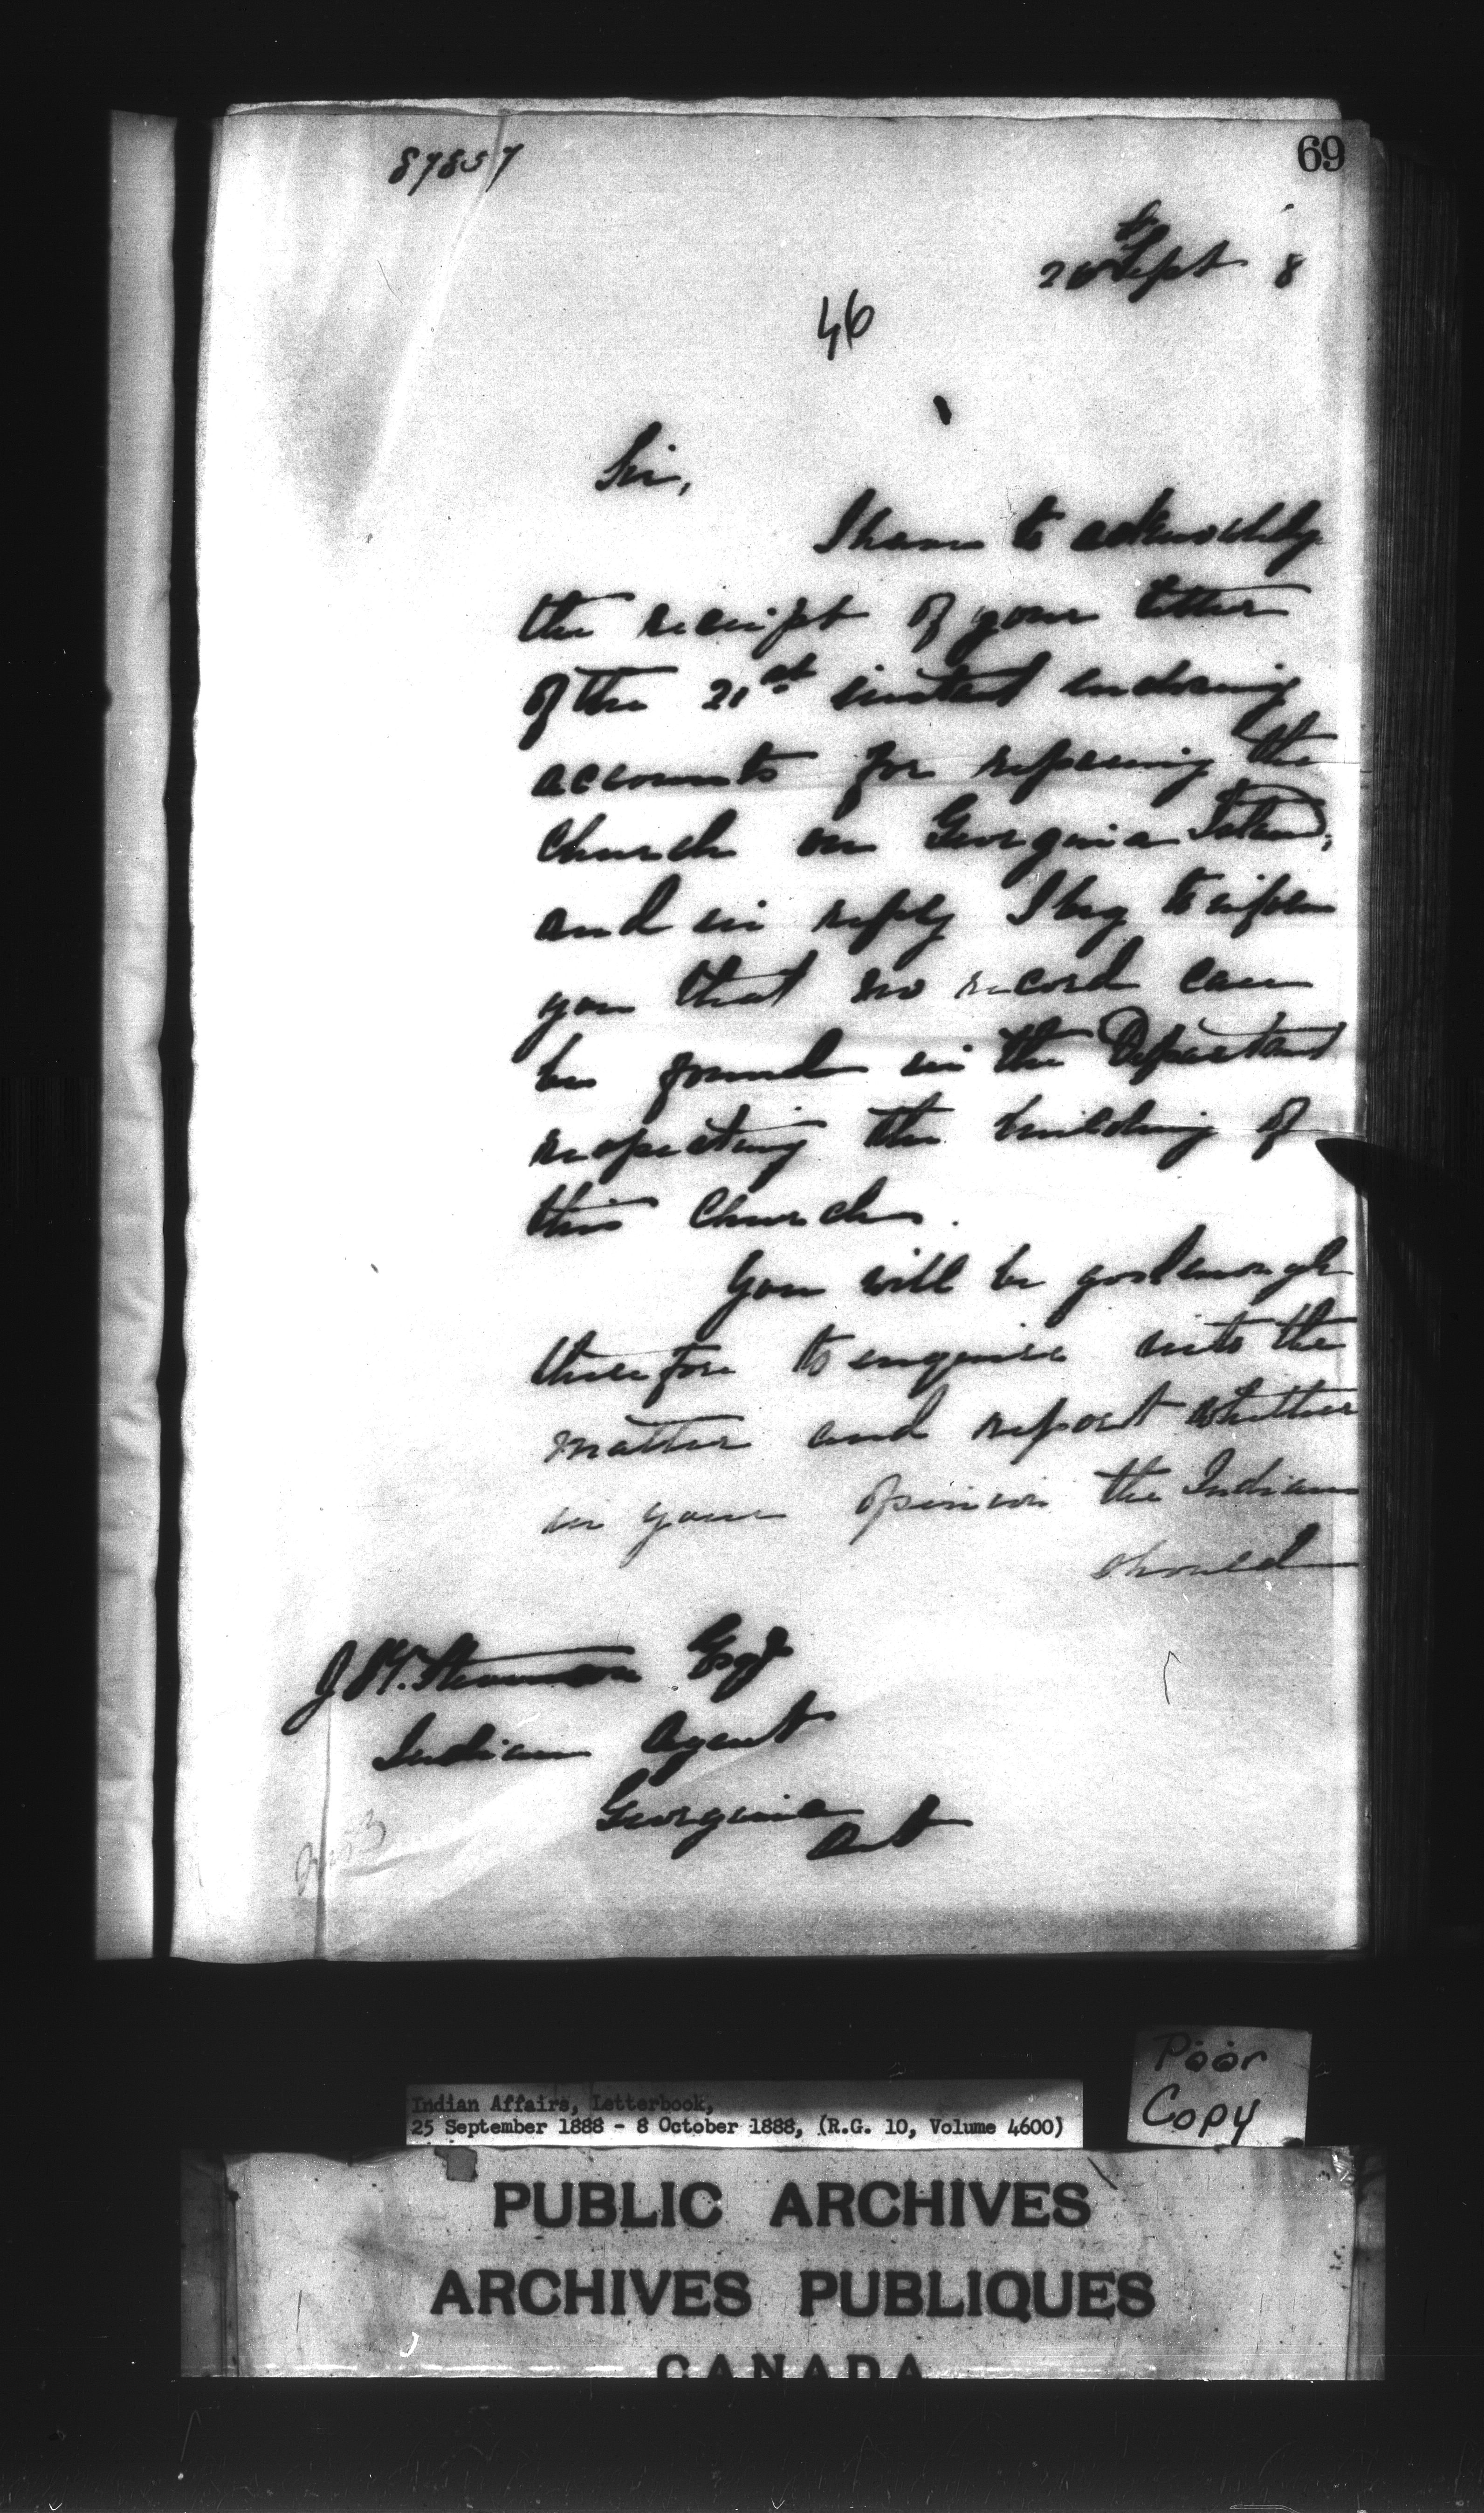 87857
69
Sept 8
46
Sir,
I have to acknowledge
the receipt of your letter
of the 21st instant enclosing
accounts for repairing the
Church on Georgina Island,
and in reply I beg to inform
you that no record can
be found in the Department
respecting the building of
this Church.
You will be good enough
therefore to enquire into the
matter and report whether
in your opinion the Indians
should
J. Esqr
Indian Agent
Georgina
Ont
Poor
Copy
Indian Affairs, Letterbook,
25 September 1888 - 8 October 1888, (R.G. 10, Volume 4600)
PUBLIC ARCHIVES
ARCHIVES PUBLIQUES
CANADA